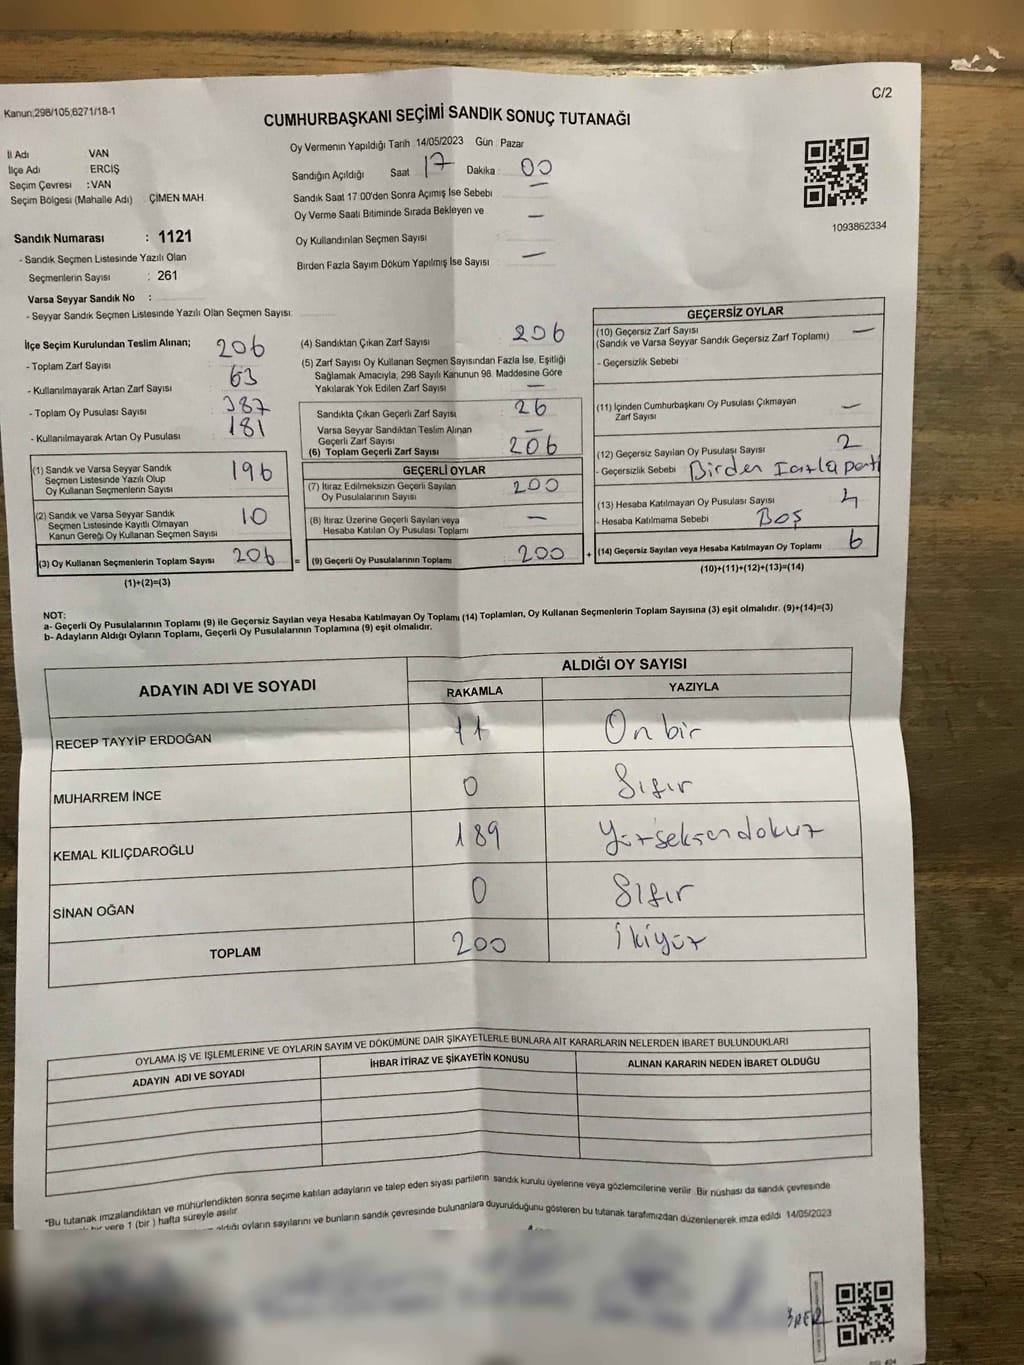 C/2
Kanun;298/105;6271/18-1
CUMHURBAŞKANI SEÇİMİ SANDIK SONUÇ TUTANAĞI
İl Adı VAN
İlçe Adı ERCİŞ
Seçim Çevresi :VAN
Seçim Bölgesi (Mahalle Adı) : ÇİMEN MAH.
Sandık Numarası : 1121
- Sandık Seçmen Listesinde Yazılı Olan
Seçmenlerin Sayısı : 261
Varsa Seyyar Sandık No :
- Seyyar Sandık Seçmen Listesinde Yazılı Olan Seçmen Sayısı:
Oy Vermenin Yapıldığı Tarih 14/05/2023 Gün : Pazar
Sandığın Açıldığı Saat 17 Dakika : 00
Sandık Saat 17:00'den Sonra Açımış İse Sebebi —
Oy Verme Saati Bitiminde Sırada Bekleyen ve
Oy Kullandırılan Seçmen Sayısı —
Birden Fazla Sayım Döküm Yapılmış İse Sayısı —
1093862334
İlçe Seçim Kurulundan Teslim Alınan;
- Toplam Zarf Sayısı 206
- Kullanılmayarak Artan Zarf Sayısı 63
- Toplam Oy Pusulası Sayısı 387
- Kullanılmayarak Artan Oy Pusulası 181
(1) Sandık ve Varsa Seyyar Sandık
Seçmen Listesinde Yazılı Olup
Oy Kullanan Seçmenlerin Sayısı 196
(2) Sandık ve Varsa Seyyar Sandık
Seçmen Listesinde Kayıtlı Olmayan
Kanun Gereği Oy Kullanan Seçmen Sayısı 10
(3) Oy Kullanan Seçmenlerin Toplam Sayısı 206 =
(1)+(2)=(3)
(4) Sandıktan Çıkan Zarf Sayısı 206
(5) Zarf Sayısı Oy Kullanan Seçmen Sayısından Fazla İse, Eşitliği
Sağlamak Amacıyla; 298 Sayılı Kanunun 98. Maddesine Göre
Yakılarak Yok Edilen Zarf Sayısı —
Sandıkta Çıkan Geçerli Zarf Sayısı 26
Varsa Seyyar Sandıktan Teslim Alınan
Geçerli Zarf Sayısı —
(6) Toplam Geçerli Zarf Sayısı 206
GEÇERLİ OYLAR
(7) İtiraz Edilmeksizin Geçerli Sayılan
Oy Pusulalarının Sayısı 200
(8) İtiraz Üzerine Geçerli Sayılan veya
Hesaba Katılan Oy Pusulası Toplamı —
(9) Geçerli Oy Pusulalarının Toplamı 200 +
GEÇERSİZ OYLAR
(10) Geçersiz Zarf Sayısı
(Sandık ve Varsa Seyyar Sandık Geçersiz Zarf Toplamı) —
- Geçersizlik Sebebi
(11) İçinden Cumhurbaşkanı Oy Pusulası Çıkmayan
Zarf Sayısı —
(12) Geçersiz Sayılan Oy Pusulası Sayısı 2
- Geçersizlik Sebebi Birden Fazla parti
(13) Hesaba Katılmayan Oy Pusulası Sayısı 4
- Hesaba Katılmama Sebebi Boş
(14) Geçersiz Sayılan veya Hesaba Katılmayan Oy Toplamı 6
(10)+(11)+(12)+(13)=(14)
NOT:
a- Geçerli Oy Pusulalarının Toplamı (9) ile Geçersiz Sayılan veya Hesaba Katılmayan Oy Toplamı (14) Toplamları, Oy Kullanan Seçmenlerin Toplam Sayısına (3) eşit olmalıdır. (9)+(14)=(3)
b- Adayların Aldığı Oyların Toplamı, Geçerli Oy Pusulalarının Toplamına (9) eşit olmalıdır.
ADAYIN ADI VE SOYADI ALDIĞI OY SAYISI
RAKAMLA YAZIYLA
RECEP TAYYİP ERDOĞAN 11 On bir
MUHARREM İNCE 0 Sıfır
KEMAL KILIÇDAROĞLU 189 Yüzseksendokuz
SİNAN OĞAN 0 Sıfır
TOPLAM 200 İkiyüz
OYLAMA İŞ VE İŞLEMLERİNE VE OYLARIN SAYIM VE DÖKÜMÜNE DAİR ŞİKAYETLERLE BUNLARA AİT KARARLARIN NELERDEN İBARET BULUNDUKLARI
ADAYIN ADI VE SOYADI İHBAR İTİRAZ VE ŞİKAYETİN KONUSU ALINAN KARARIN NEDEN İBARET OLDUĞU
*Bu tutanak imzalandıktan ve mühürlendikten sonra seçime katılan adayların ve talep eden siyasi partilerin sandık kurulu üyelerine veya gözlemcilerine verilir. Bir nüshası da sandık çevresinde
bir yere 1 (bir) hafta süreyle asılır.
aldığı oyların sayılarını ve bunların sandık çevresinde bulunanlara duyurulduğunu gösteren bu tutanak tarafımızdan düzenlenerek imza edildi 14/05/2023